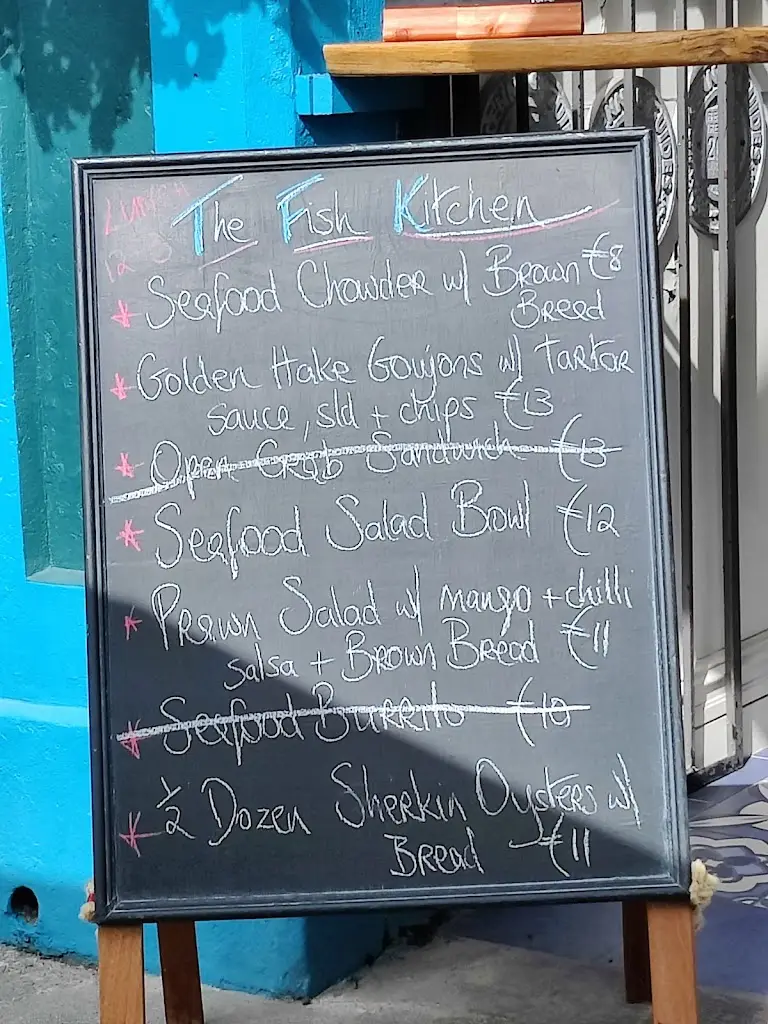 LUNCH
12-3
The Fish Kitchen
* Seafood Chowder w/ Brown €8
Bread
* Golden Hake Goujons w/ Tartar
sauce, sld + chips €13
* Open Crab Sandwich €13
* Seafood Salad Bowl €12
* Prawn Salad w/ mango + chilli
salsa + Brown Bread €11
* Seafood Burrito €10
* 1/2 Dozen Sherkin Oysters w/
Bread €11